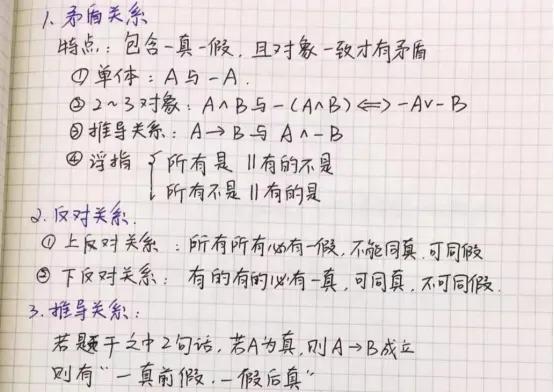 1. 矛盾关系
特点：包含一真一假，且对象一致才有矛盾
① 单体：A 与 -A.
② 2～3对象：A∧B 与 -(A∧B) <=> -A∨-B
③ 推导关系：A→B 与 A∧-B
④ 浮指 { 所有是 || 有的不是
所有不是 || 有的是
2. 反对关系.
① 上反对关系：所有所有必有一假，不能同真，可同假
② 下反对关系：有的有的必有一真，可同真，不可同假.
3. 推导关系：
若题干之中2句话，若A为真，则A→B成立
则有“一真前假，一假后真”